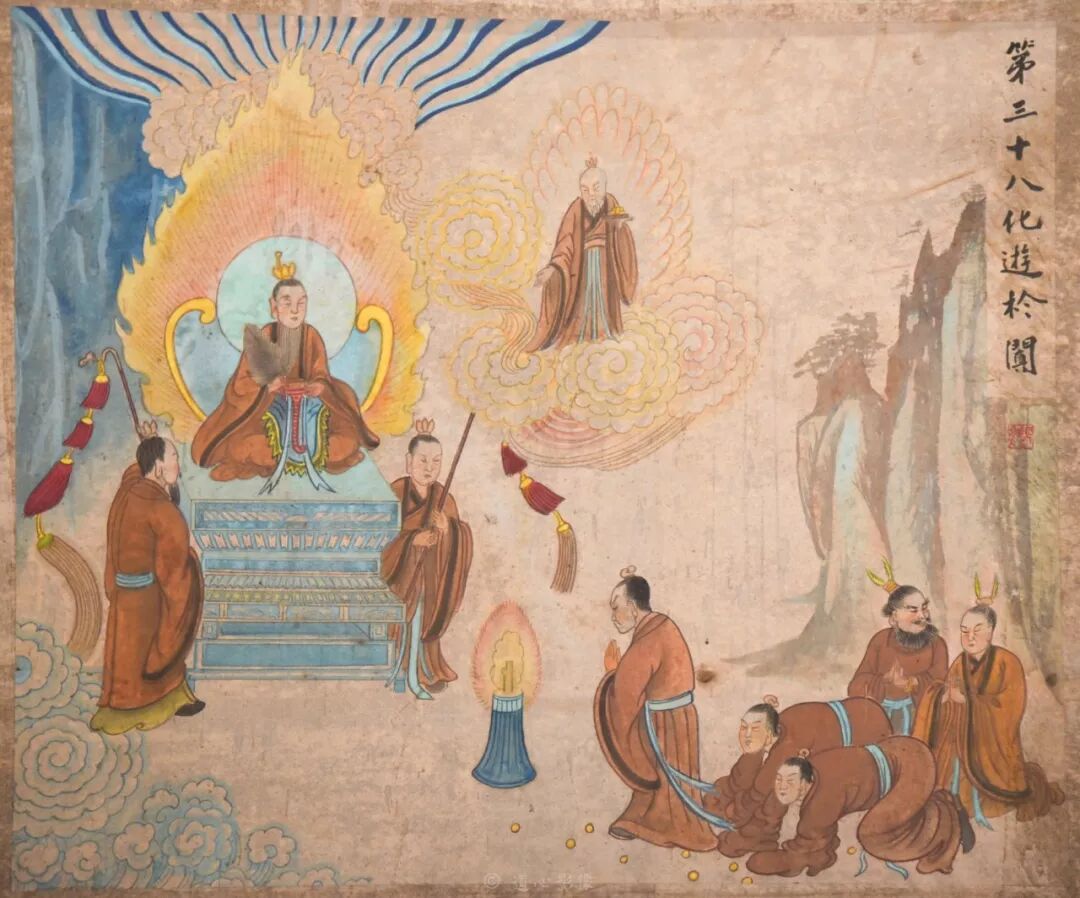 第三十八化遊扵闐